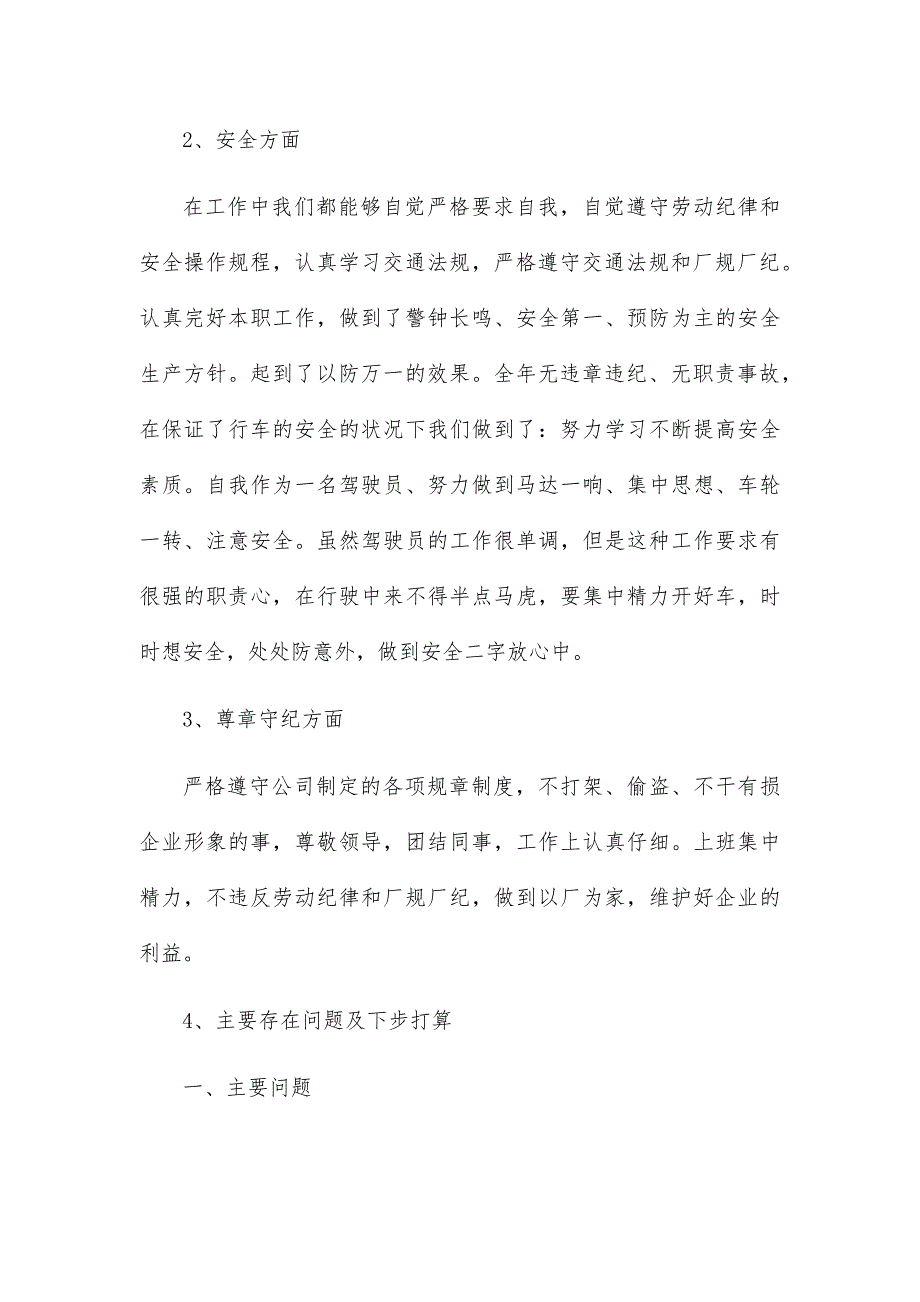 2、安全方面
在工作中我们都能够自觉严格要求自我，自觉遵守劳动纪律和
安全操作规程，认真学习交通法规，严格遵守交通法规和厂规厂纪。
认真完好本职工作，做到了警钟长鸣、安全第一、预防为主的安全
生产方针。起到了以防万一的效果。全年无违章违纪、无职责事故，
在保证了行车的安全的状况下我们做到了：努力学习不断提高安全
素质。自我作为一名驾驶员、努力做到马达一响、集中思想、车轮
一转、注意安全。虽然驾驶员的工作很单调，但是这种工作要求有
很强的职责心，在行驶中来不得半点马虎，要集中精力开好车，时
时想安全，处处防意外，做到安全二字放心中。
3、尊章守纪方面
严格遵守公司制定的各项规章制度，不打架、偷盗、不干有损
企业形象的事，尊敬领导，团结同事，工作上认真仔细。上班集中
精力，不违反劳动纪律和厂规厂纪，做到以厂为家，维护好企业的
利益。
4、主要存在问题及下步打算
一、主要问题